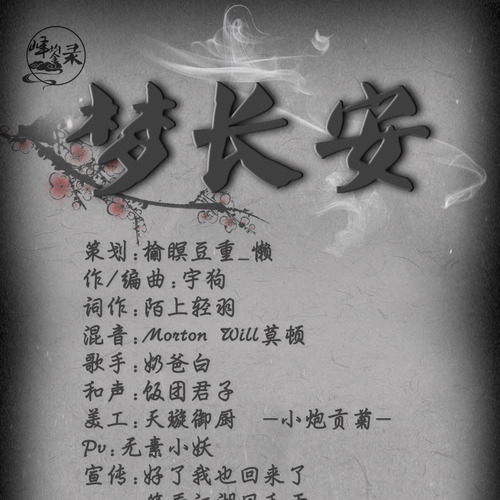 峰崯金录
梦长安
策划:榆瞑豆重_懒
作/编曲:宇狗
词作:陌上轻羽
混音:Morton Will莫顿
歌手:奶爸白
和声:饭团君子
美工:天璇御厨 —小炮贡菊—
Pv:无素小妖
宣传:好了我也回来了